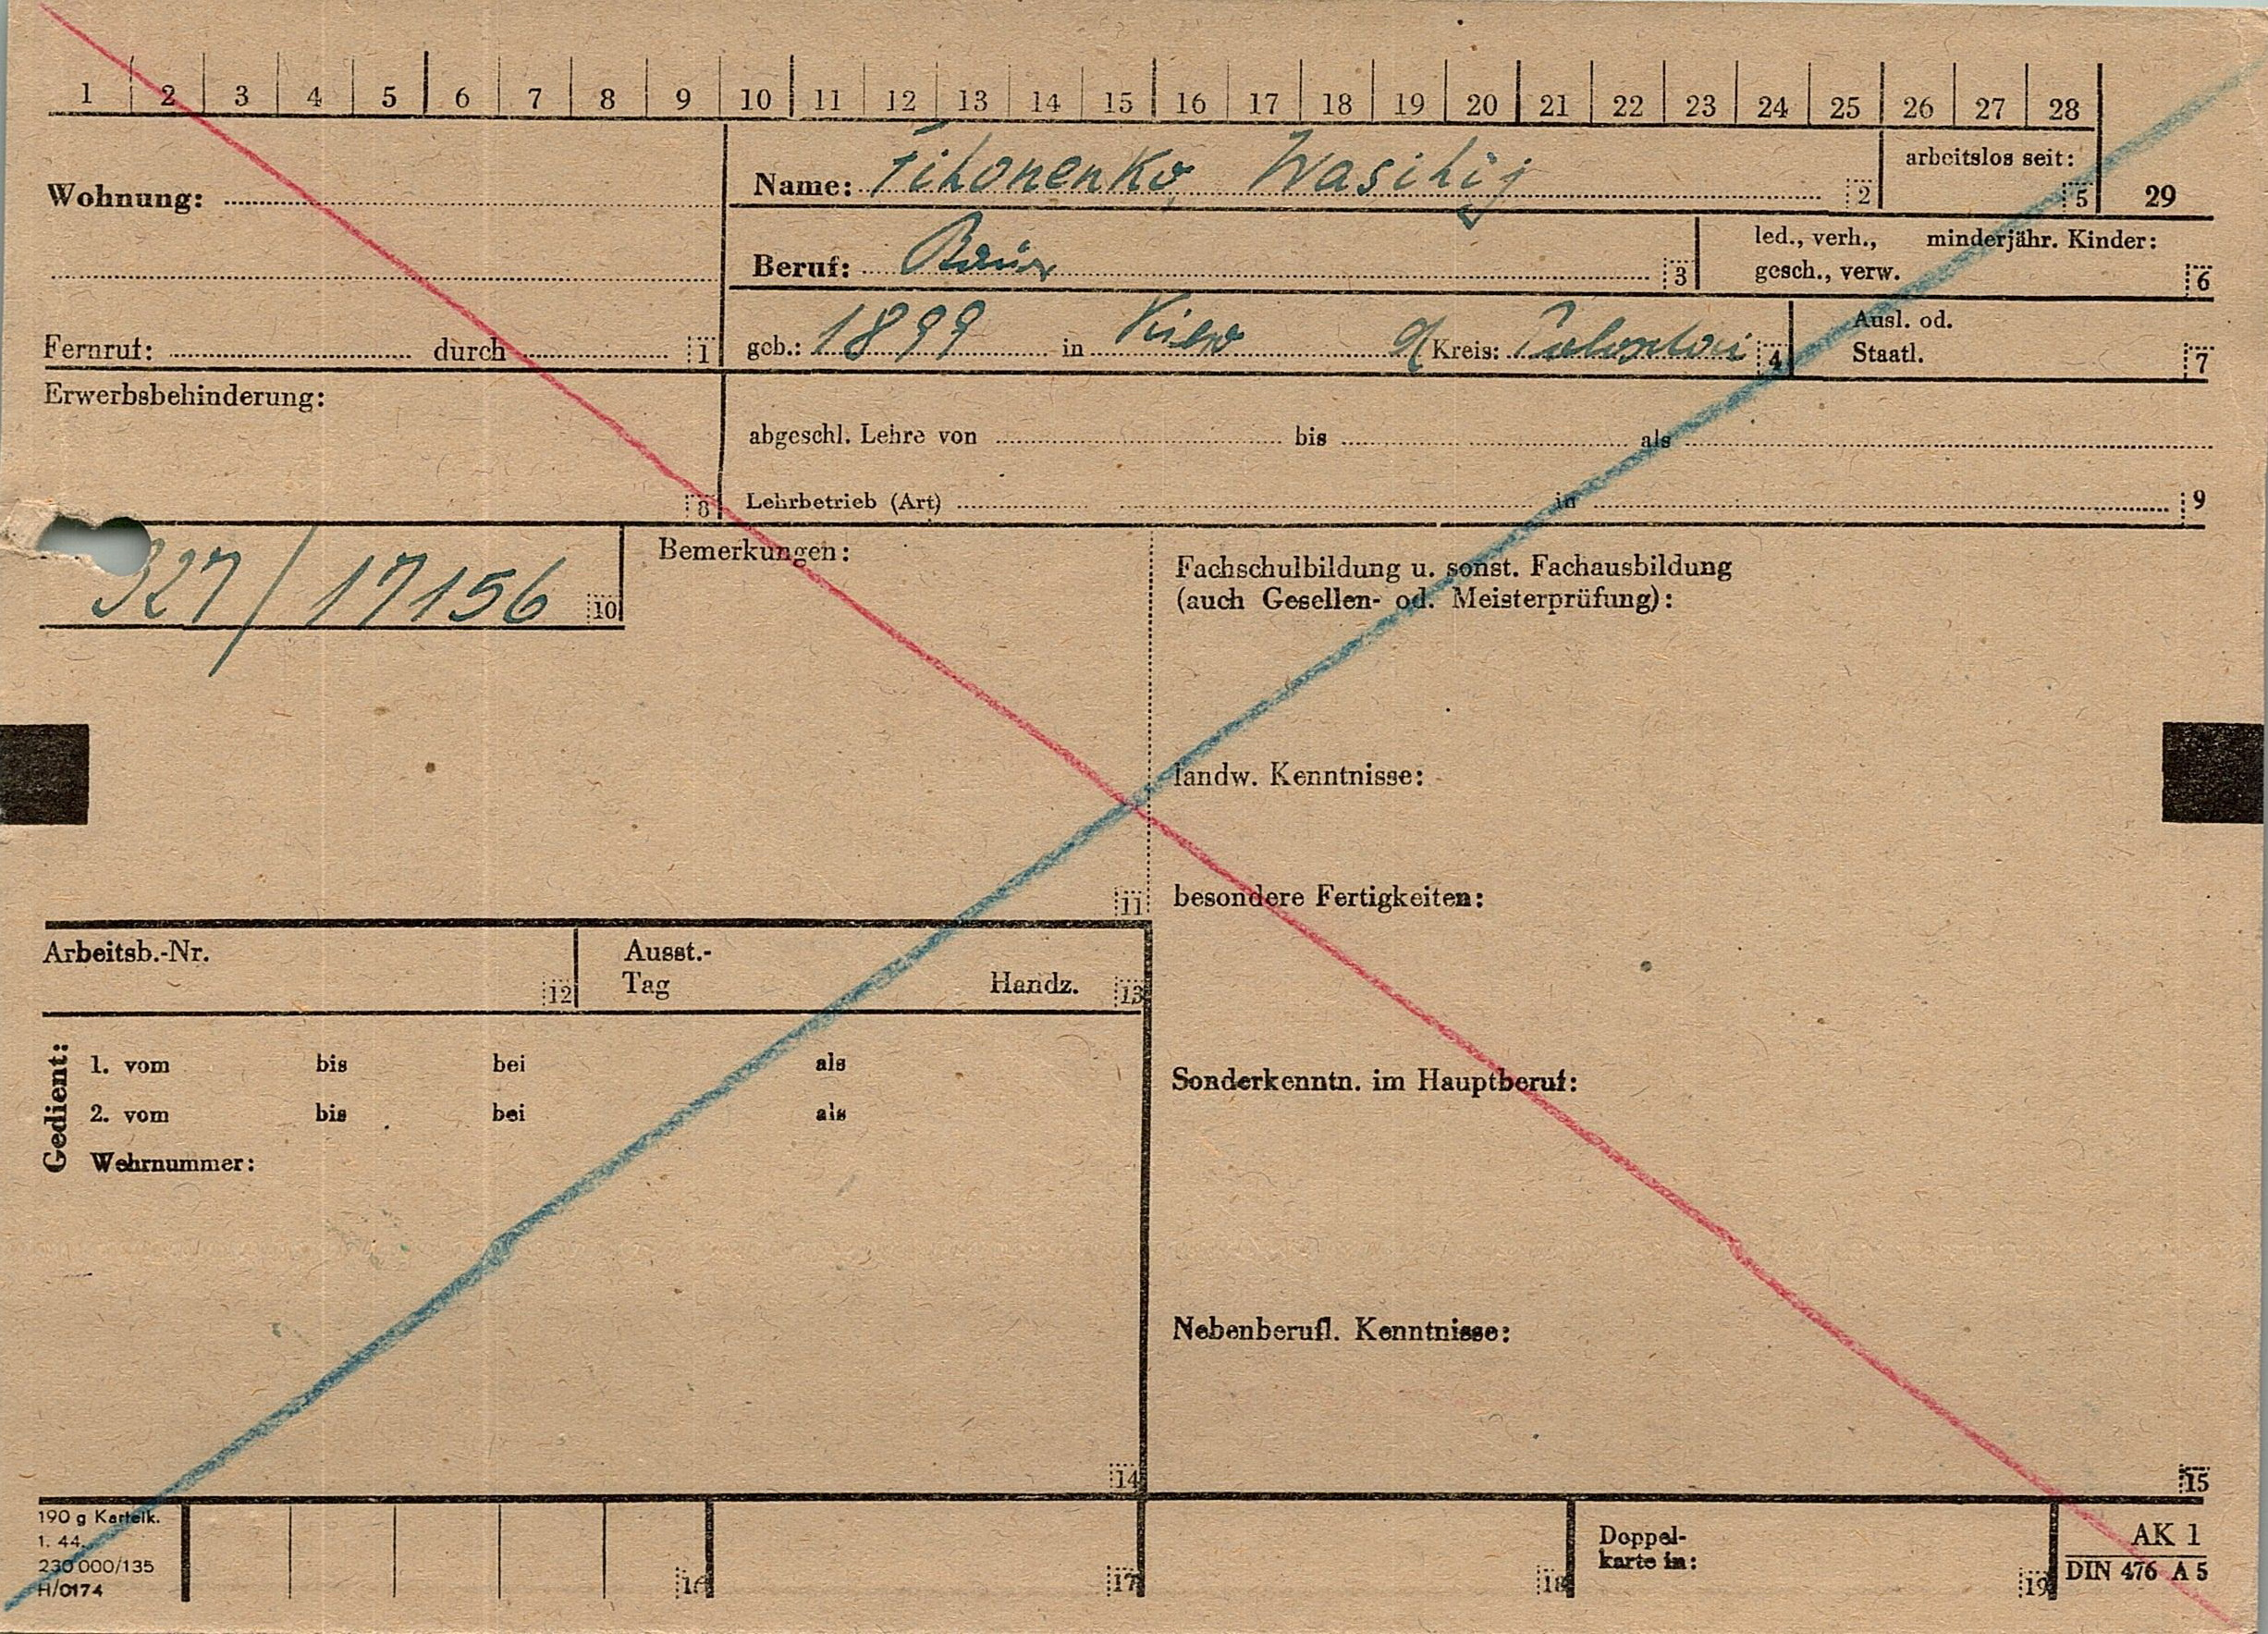 1 2 3 4 5 6 7 8 9 10 11 12 13 14 15 16 17 18 19 20 21 22 23 24 25 26 27 28
Wohnung:
Name: Tihonenko, Wasilij 2
arbeitslos seit: 5
29
Beruf: Bauer 3
led., verh., minderjähr. Kinder:
gesch., verw. 6
Fernruf: durch 1
geb.: 1899 in Kiew Kreis: 4
Ausl. od.
Staatl. 7
Erwerbsbehinderung:
8
abgeschl. Lehre von bis als
Lehrbetrieb (Art) in 9
327/17156 10
Bemerkungen:
11
Fachschulbildung u. sonst. Fachausbildung
(auch Gesellen- od. Meisterprüfung):
landw. Kenntnisse:
besondere Fertigkeiten:
Arbeitsb.-Nr. 12
Ausst.-
Tag Handz. 13
Gedient:
1. vom bis bei als
2. vom bis bei als
Wehrnummer:
14
Sonderkenntn. im Hauptberuf:
Nebenberufl. Kenntnisse:
15
190 g Karteik.
1. 44.
230 000/135
H/0174
16
17
18
Doppel-
karte in: 19
AK 1
DIN 476 A 5